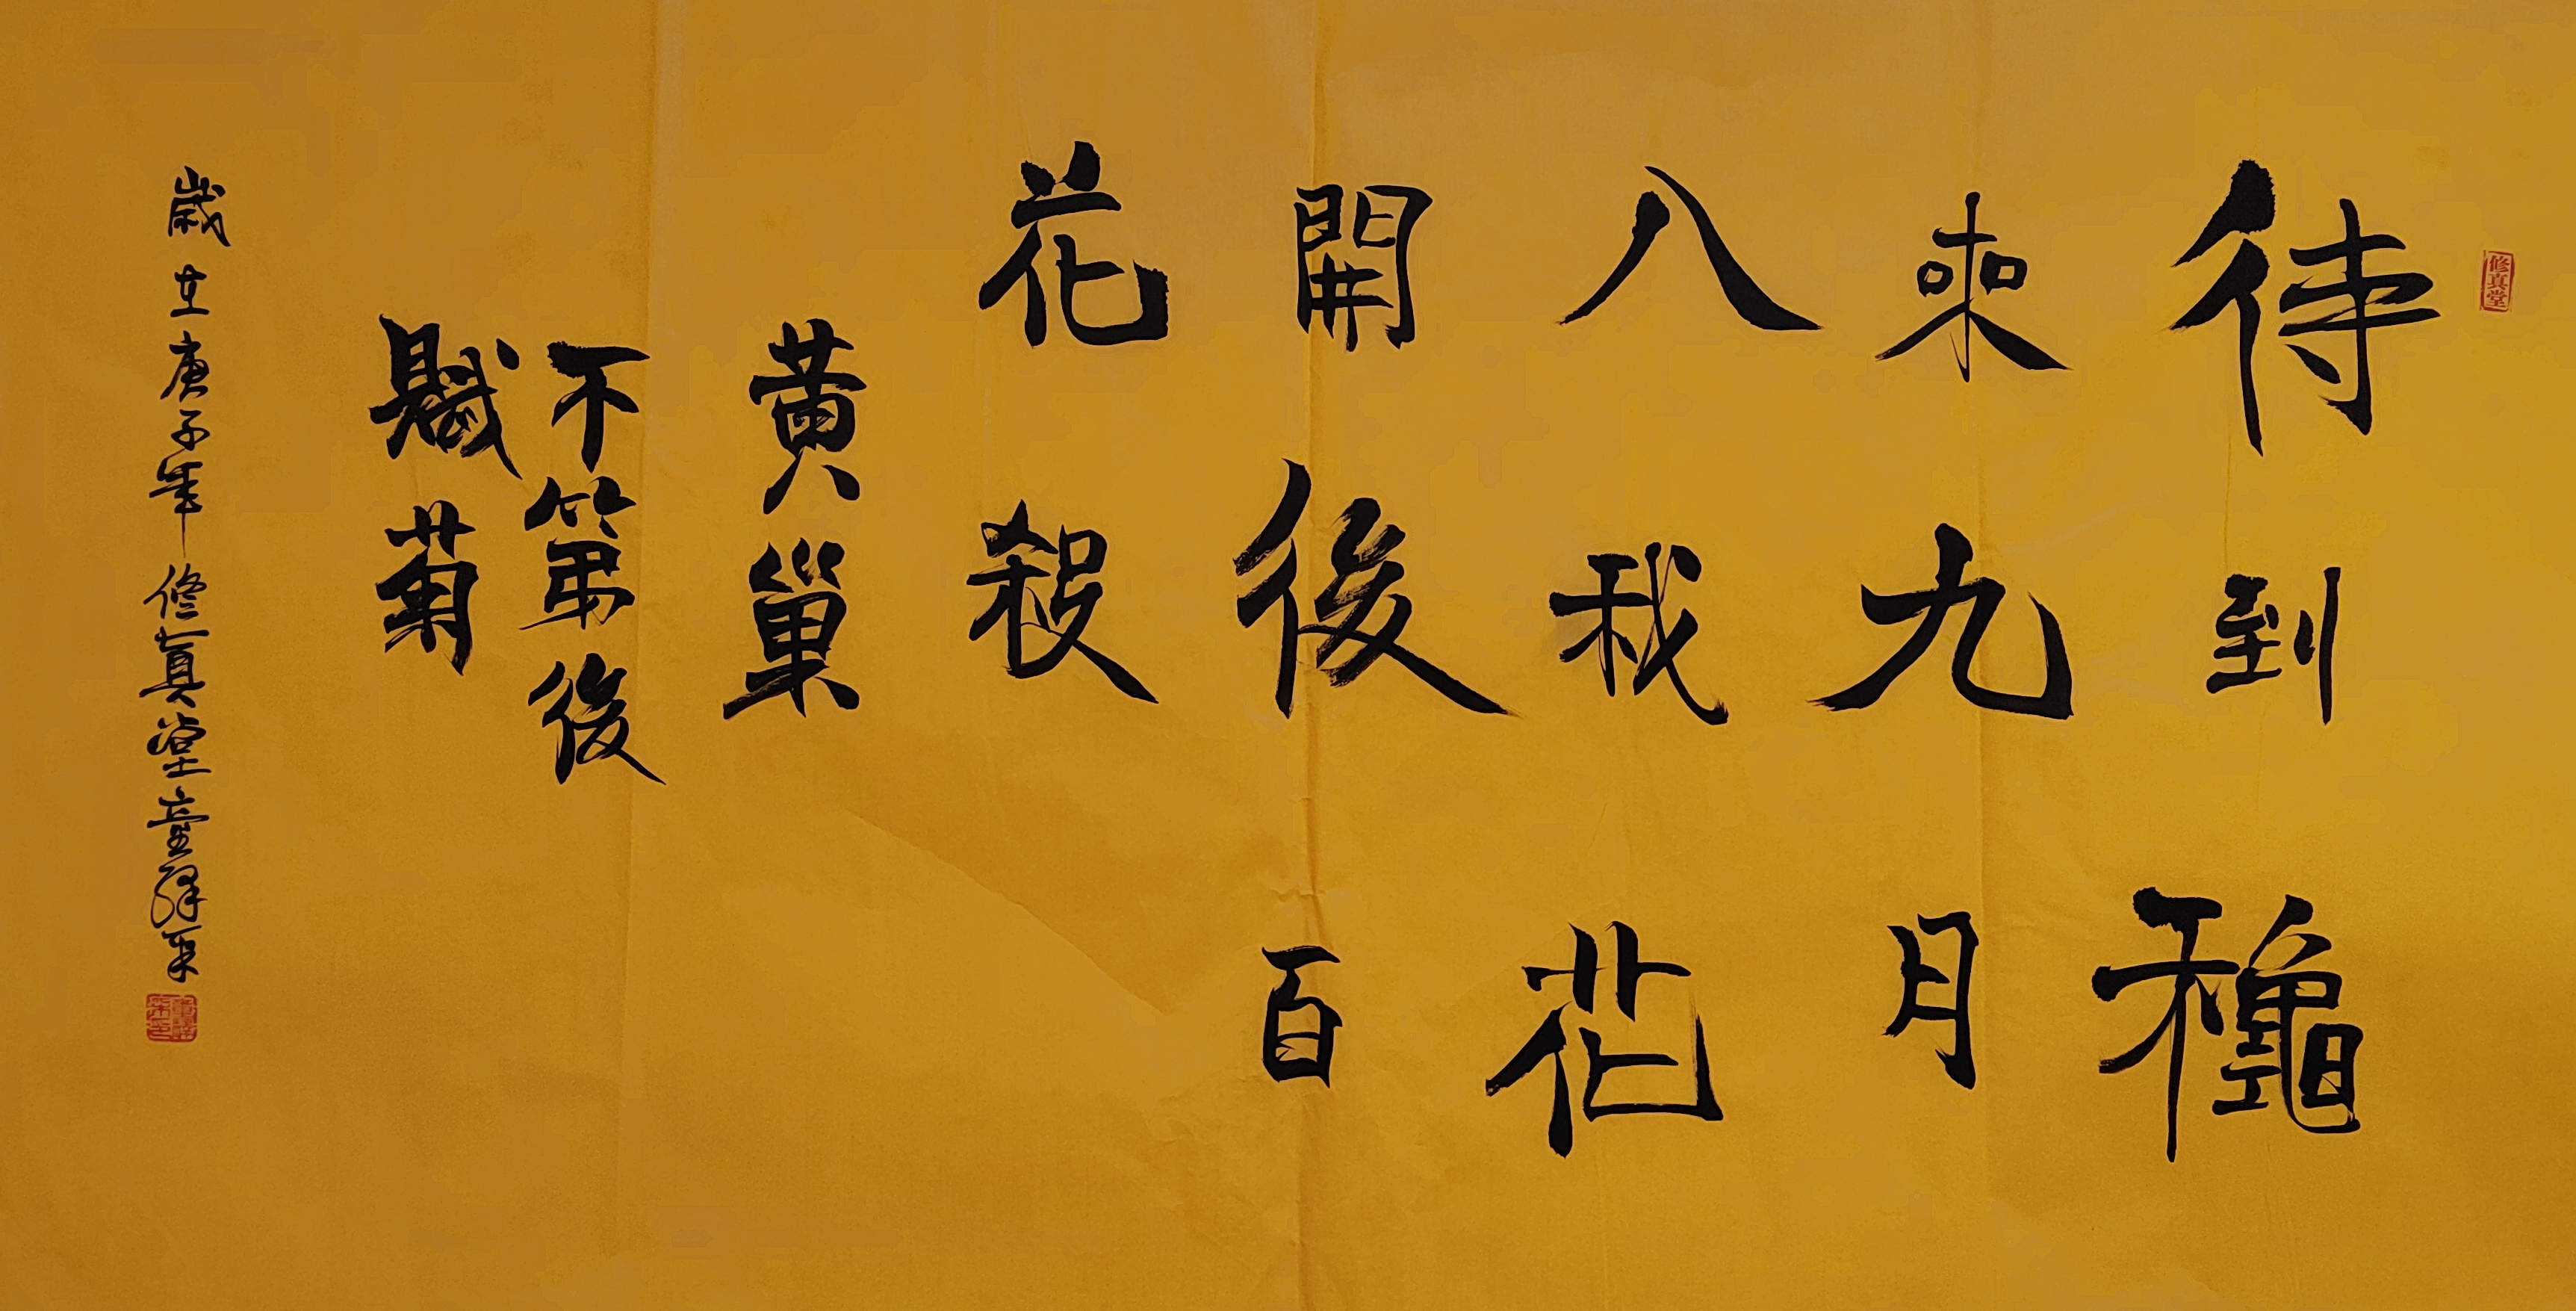 修真堂
待到龝
來九月
八我花
開後百
花殺
黄巢
不第後
賦菊
歲在庚子年修真堂童